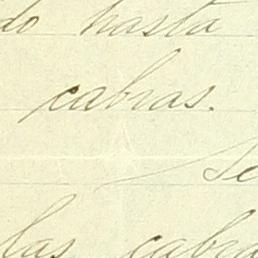 do hasta
cabras.
Se
las cabra